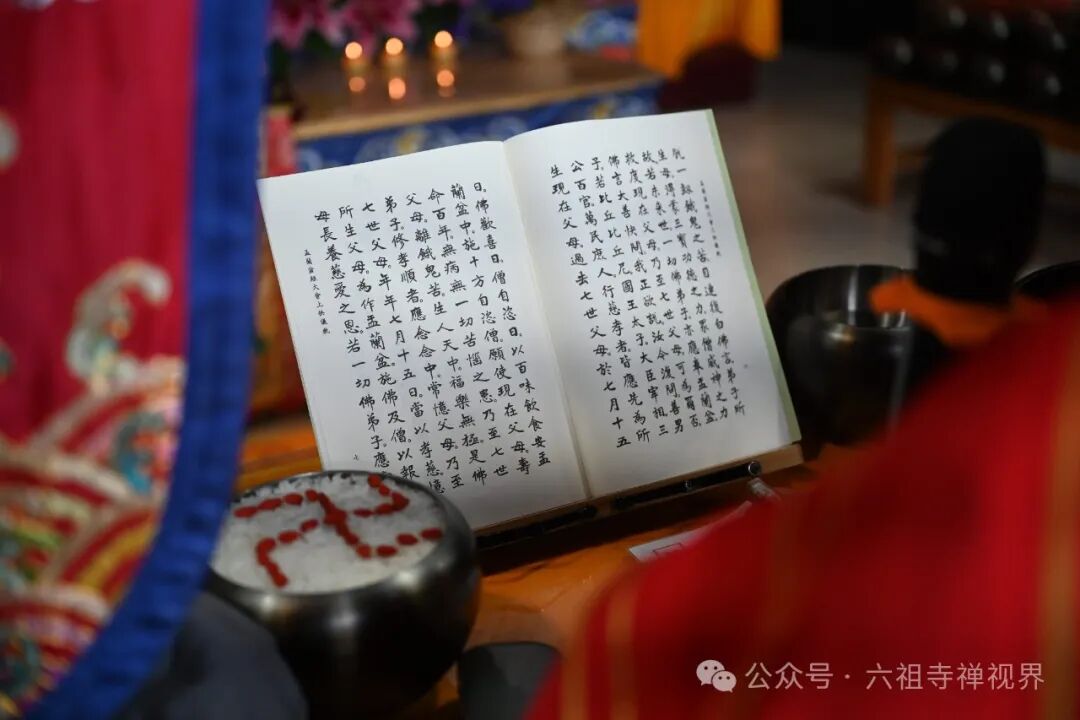 脫一劫餓鬼之苦。目連復白佛言。弟子所
生母。得蒙三寶功德之力。眾僧威神之力
故。若未來世。一切佛弟子。亦應奉盂蘭盆。
救度現在父母。乃至七世父母。可為爾否。
佛言。大善快問。我正欲說。汝今復問。善男
子。若比丘比丘尼。國王太子。大臣宰相。三
公百官。萬民庶人。行慈孝者。皆應先為所
生現在父母。過去七世父母。於七月十五
日。佛歡喜日。僧自恣日。以百味飲食。安盂
蘭盆中。施十方自恣僧。願使現在父母。壽
命百年。無病。無一切苦惱之患。乃至七世
父母。離餓鬼苦。生人天中。福樂無極。是佛
弟子。修孝順者。應念念中。常憶父母。乃至
七世父母。年年七月十五日。當以孝慈。憶
所生父母。為作盂蘭盆。施佛及僧。以報
母長養慈愛之恩。若一切佛弟子。應
公众号·六祖寺禅视界